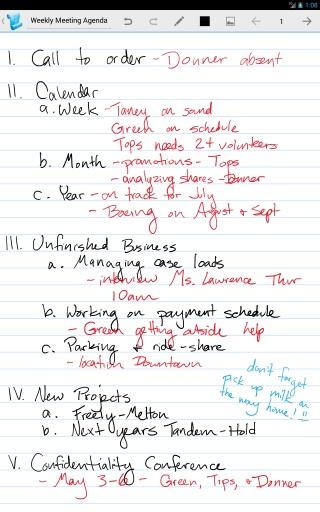 1:08
Weekly Meeting Agenda
1
I. Call to order - Donner absent
II. Calendar
a. Week - Taney on sound
Green on schedule
Tops needs 2+ volunteers
b. Month - promotions - Tops
- analyzing shares - Donner
c. Year - on track for July
- Boeing on August & Sept
III. Unfinished Business
a. Managing case loads
- interview Ms. Lawrence Thur
10am
b. Working on payment schedule
- Green getting outside help
c. Parking & ride-share
- location Downtown
don't forget
pick up milk on
the way home!
IV. New Projects
a. Freety-Melton
b. Next years Tandem-Hold
V. Confidentiality Conference
- May 3-6 - Green, Tips, & Donner